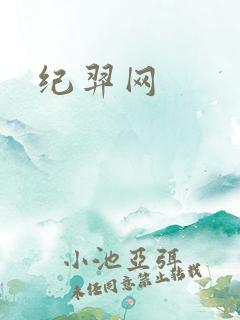 纪羿网
小池亞弭
未经同意禁止转载